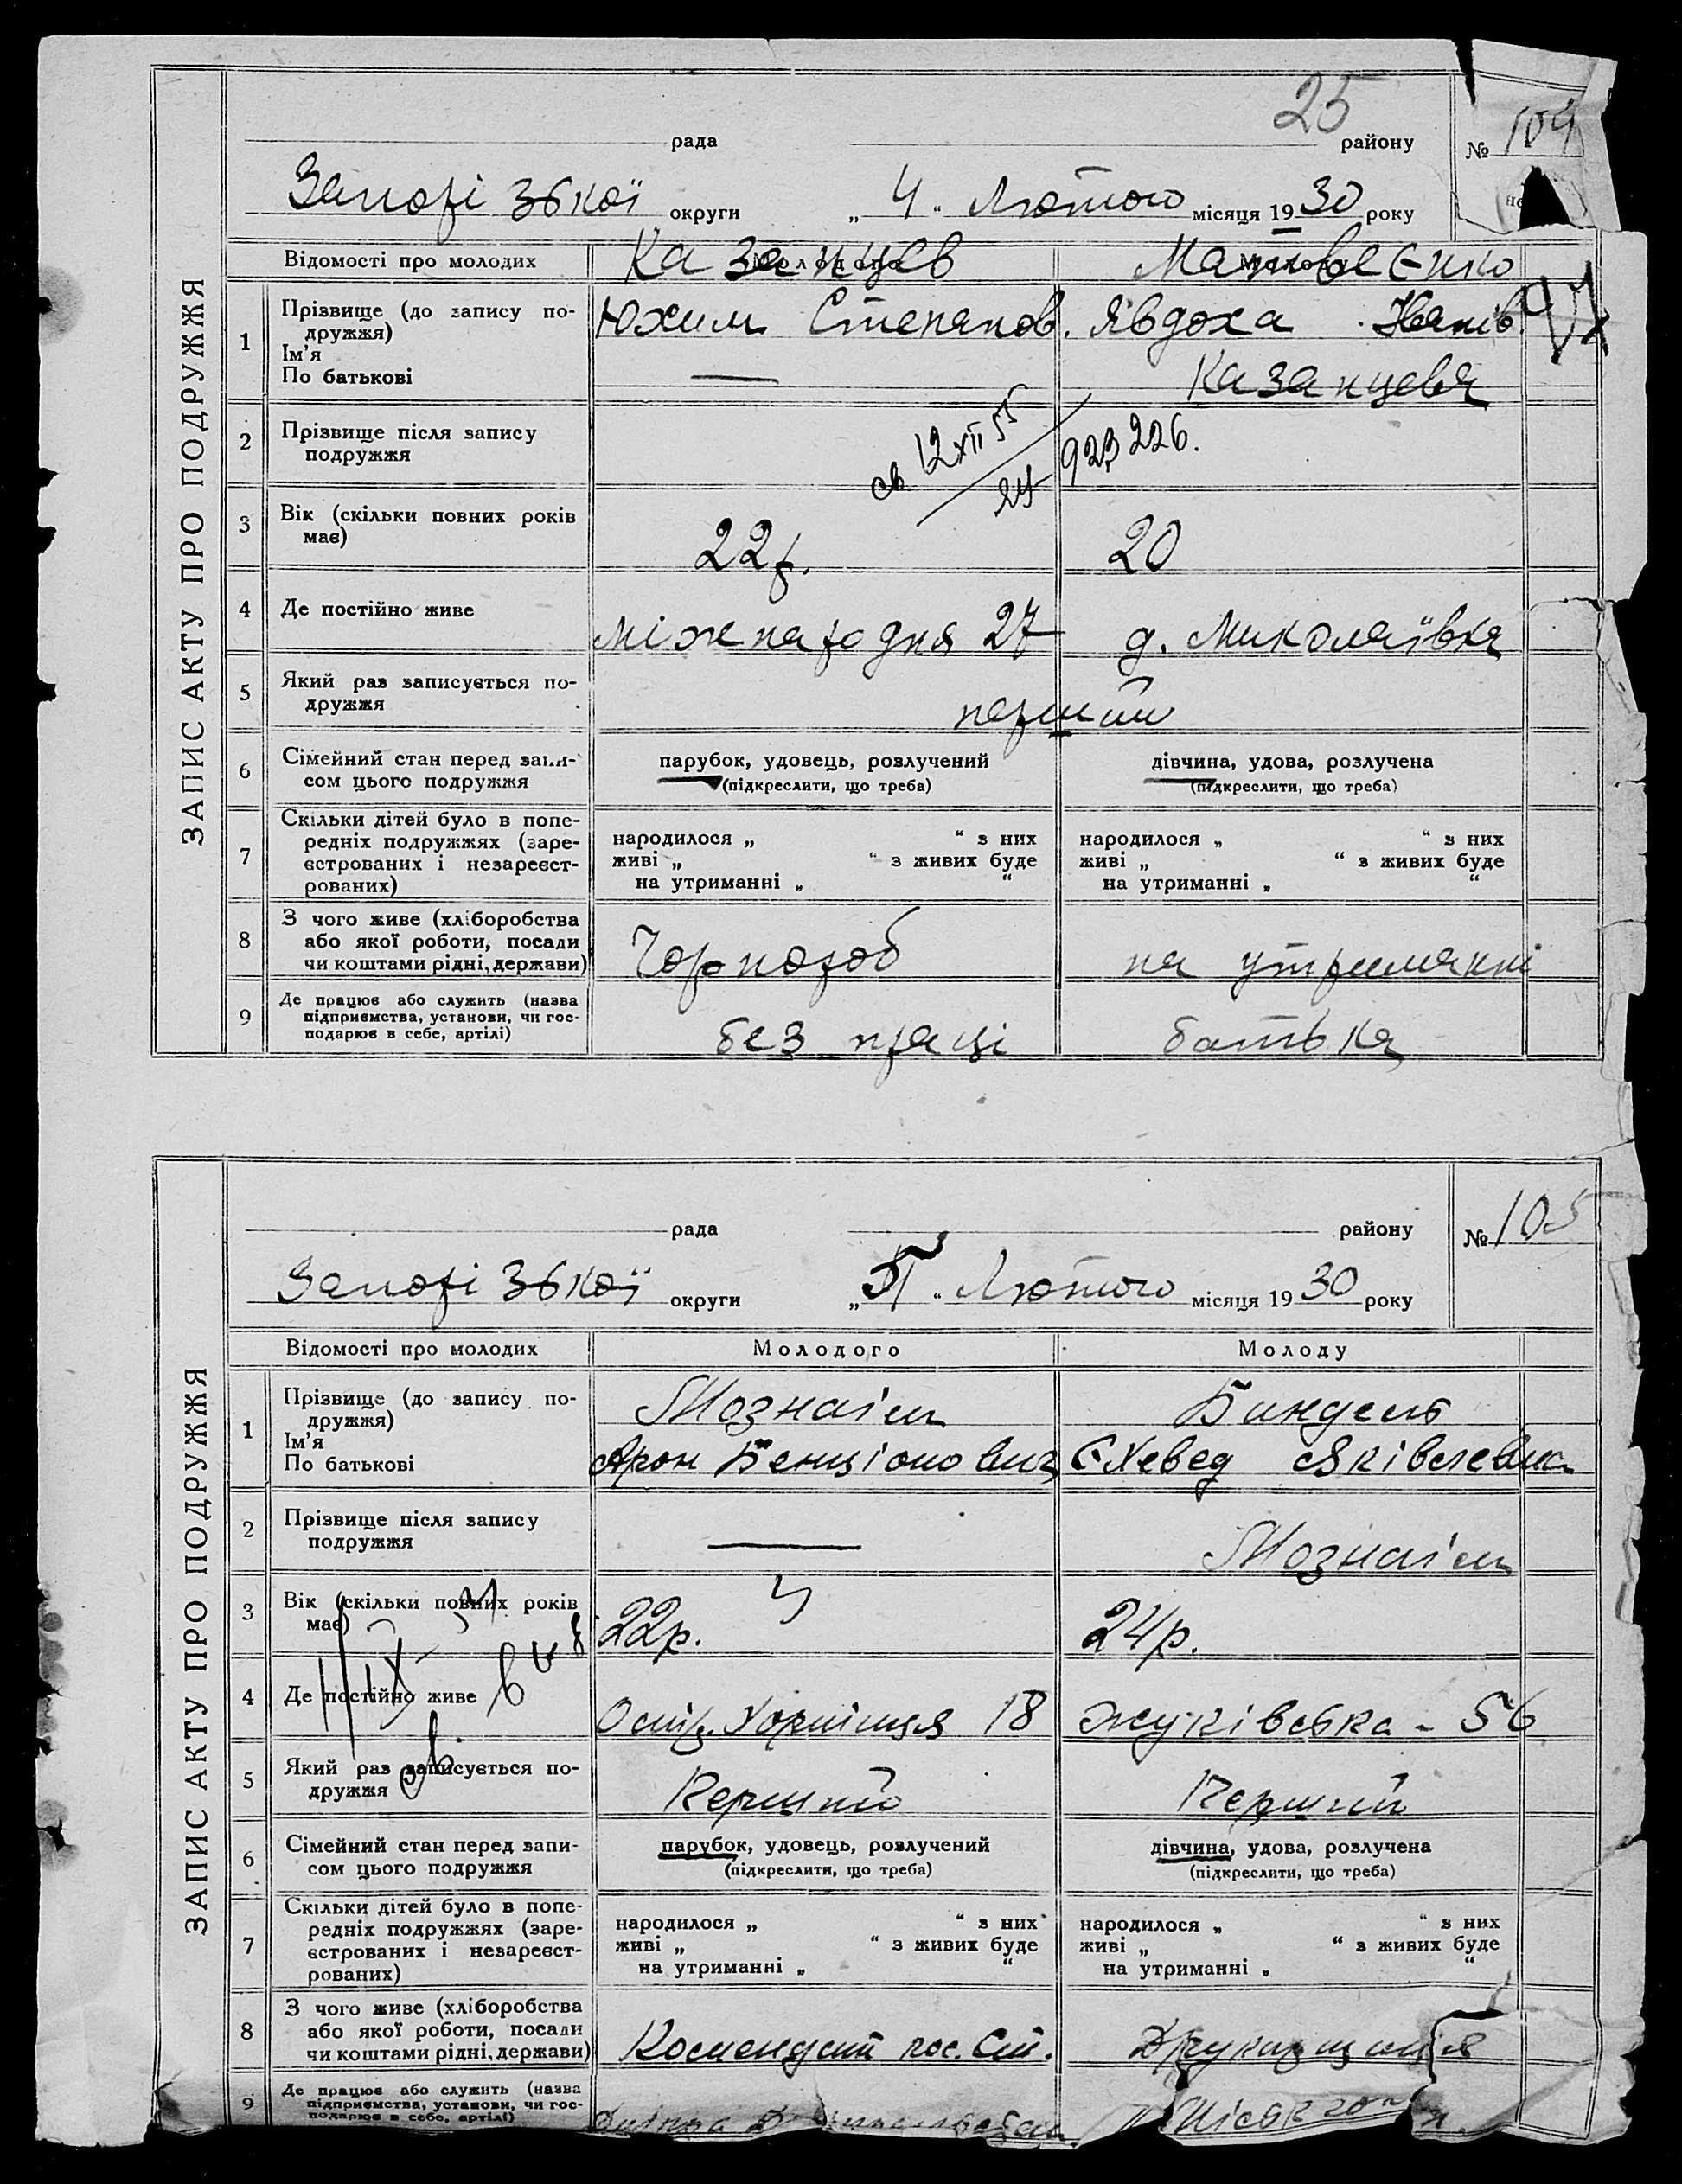 25
рада району № 104
Запорізької округи „4“ Лютого місяця 1930 року
ЗАПИС АКТУ ПРО ПОДРУЖЖЯ
Відомості про молодих Казанцев Матвеєнко
1 Прізвище (до запису по-
дружжя)
Ім’я
По батькові
Юхим Степанов. Явдоха Іванів.
— Казанцева
2 Прізвище після запису
подружжя
св. 12 XII 55 923226.
3 Вік (скільки повних років
має)
22р. 20
4 Де постійно живе
міжнародня 27 д. Миколаївка
5 Який раз записується по-
дружжя
перший
6 Сімейний стан перед запи-
сом цього подружжя
парубок, удовець, розлучений дівчина, удова, розлучена
(підкреслити, що треба) (підкреслити, що треба)
7 Скільки дітей було в попе-
редніх подружжях (заре-
єстрованих і незареєст-
рованих)
народилося „ “ з них народилося „ “ з них
живі „ “ з живих буде живі „ “ з живих буде
на утриманні „ “ на утриманні „ “
8 З чого живе (хліборобства
або якої роботи, посади
чи коштами рідні, держави)
Чорнороб на утриманні
9 Де працює або служить (назва
підприємства, установи, чи гос-
подарює в себе, артілі)
без праці батька
рада району № 105
Запорізької округи „5“ Лютого місяця 1930 року
ЗАПИС АКТУ ПРО ПОДРУЖЖЯ
Відомості про молодих Молодого Молоду
1 Прізвище (до запису по-
дружжя)
Ім’я
По батькові
Мознаім Биндель
Арон Бенціонович Єхевед Яківлевна
2 Прізвище після запису
подружжя
— Мознаім
3 Вік (скільки повних років
має)
22р. 24р.
4 Де постійно живе
Остр. Хортиця 18 Жуківська - 56
5 Який раз записується по-
дружжя
Перший Перший
6 Сімейний стан перед запи-
сом цього подружжя
парубок, удовець, розлучений дівчина, удова, розлучена
(підкреслити, що треба) (підкреслити, що треба)
7 Скільки дітей було в попе-
редніх подружжях (заре-
єстрованих і незареєст-
рованих)
народилося „ “ з них народилося „ “ з них
живі „ “ з живих буде живі „ “ з живих буде
на утриманні „ “ на утриманні „ “
8 З чого живе (хліборобства
або якої роботи, посади
чи коштами рідні, держави)
Комендант пос. Ст. Друкарщиця
9 Де працює або служить (назва
підприємства, установи, чи гос-
подарює в себе, артілі)